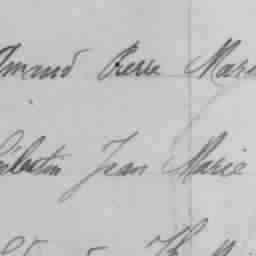 Armand Pierre Mar
Célestin Jean Marie